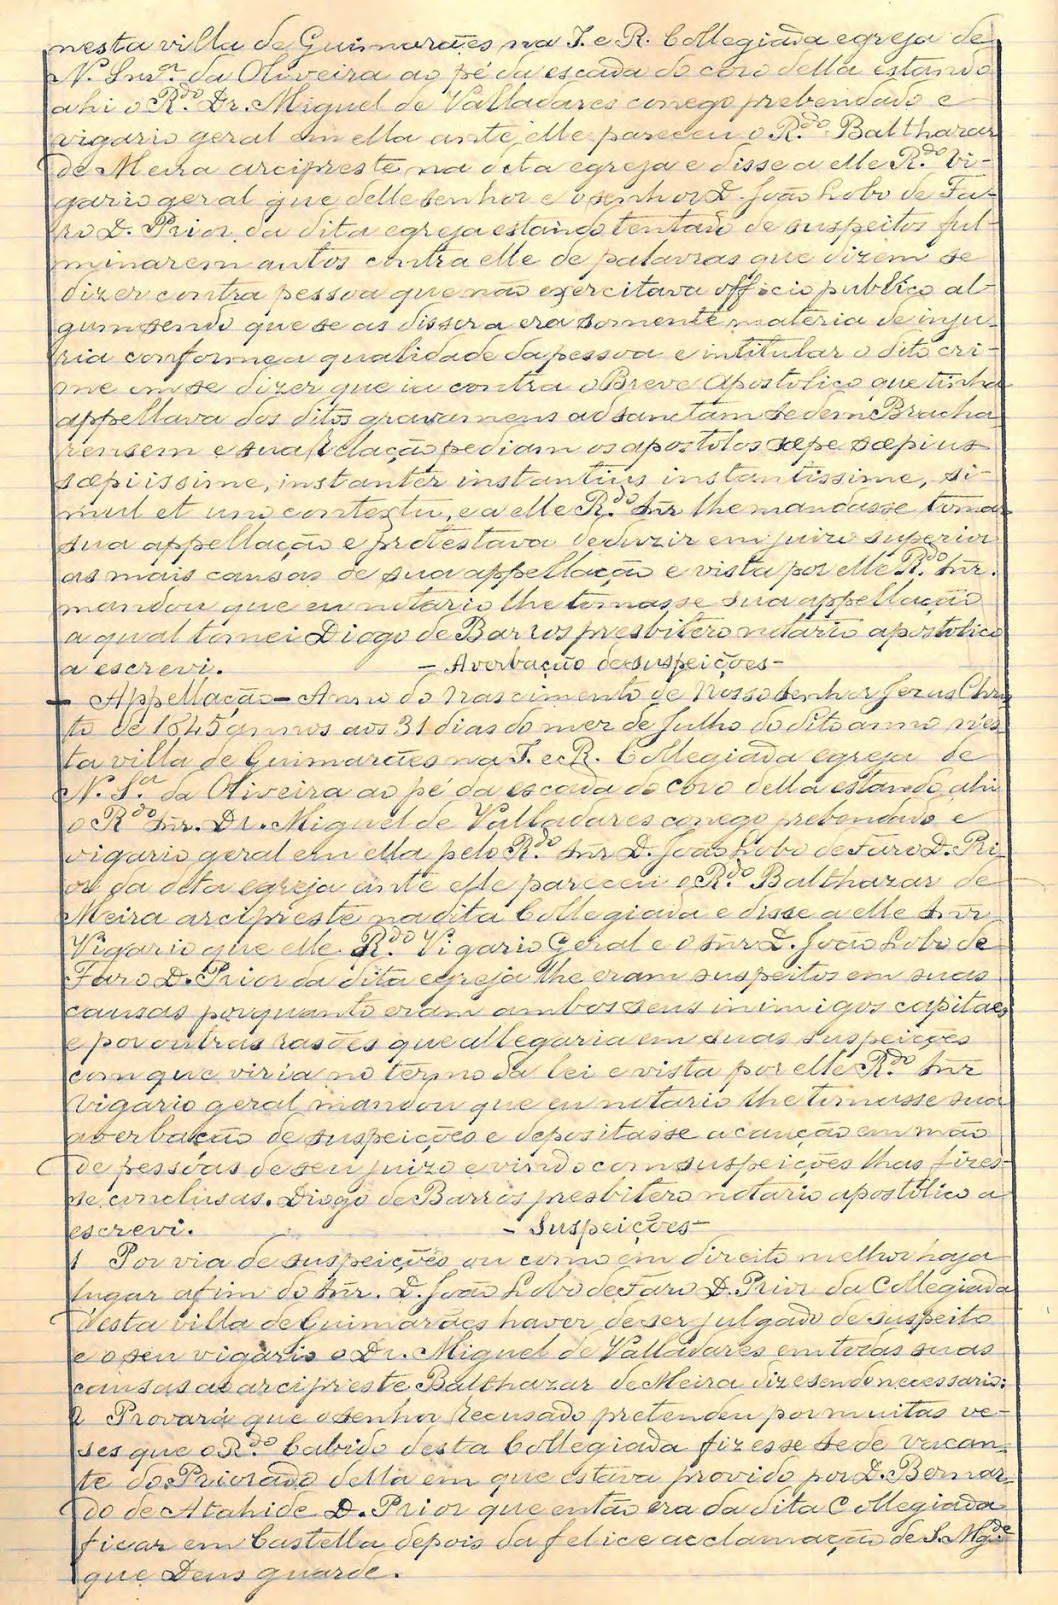 nesta villa de Guimarães na I. e R. Collegiada egreja de
N. Snr.ª da Oliveira ao pé da escada do coro della estando
ahi o R.do Dr. Miguel de Valladares conego prebendado e
vigario geral em ella ante elle pareceu o R.do Balthazar
de Meira arcipreste na dita egreja e disse a elle R.do Vi-
gario geral que delle senhor e o senhor D. João Lobo de Fa-
ro D. Prior da dita egreja estando tentado de suspeitos ful-
minarem autos contra elle de palavras que dizem se
dizer contra pessoa que não exercitava officio publico al-
gum sendo que se as dissera era somente materia de inju-
ria conforme a qualidade da pessoa e intitular o dito cri-
me em se dizer que ia contra o Breve Apostolico que tinha
appellava dos ditos gravamens ad sanctam sedem Bracha
rensem e sua Relação pediam os apostolos sæpe sæpius
sæpiissime, instanter instantius instantissime, si-
mul et uno contextu, e a elle R.do Snr lhe mandasse tomar
sua appellação e protestava deduzir em juizo superior
as mais causas de sua appellação e vista por elle R.do Snr.
mandou que eu notario lhe tomasse sua appellação
a qual tomei Diogo de Barros presbitero notario apostolico
a escrevi. - Averbação de suspeições -
- Appellação - Anno do Nascimento de Nosso Senhor Jezus Chris
to de 1645 annos aos 31 dias do mez de Julho do dito anno n'es
ta villa de Guimarães na I. e R. Collegiada egreja de
N. S.ª da Oliveira ao pé da escada do coro della estando ahi
o R.do Snr. Dr. Miguel de Valladares conego prebendado e
vigario geral em ella pelo R.do Snr D. João Lobo de Faro D. Pri
or da dita egreja ante elle pareceu o R.do Balthazar de
Meira arcipreste na dita Collegiada e disse a elle Snr
Vigario que elle R.do Vigario Geral e o Snr D. João Lobo de
Faro D. Prior da dita egreja lhe eram suspeitos em suas
causas porquanto eram ambos seus inimigos capitaes
e por outras rasões que allegaria em suas suspeições
com que viria no termo da lei e vista por elle R.do Snr
vigario geral mandou que eu notario lhe tomasse sua
averbação de suspeições e depositasse a caução em mão
de pessoas de seu juizo e vindo com suspeições lhas fizes-
se conclusas. Diogo de Barros presbitero notario apostolico a
escrevi. - Suspeições -
1 Por via de suspeições ou como em direito melhor haja
lugar afim do Snr. D. João Lobo de Faro D. Prior da Collegiada
desta villa de Guimarães haver de ser julgado de suspeito
e o seu vigario o Dr. Miguel de Valladares em todas suas
causas ao arcipreste Balthazar de Meira diz e sendo necessario:
2 Provará que o senhor Recusado pretendeu por muitas ve-
ses que o R.do Cabido desta Collegiada fizesse sede vacan-
te do Priorado della em que estava provido por D. Bernar-
do de Atahide D. Prior que então era da dita Collegiada
ficar em Castella depois da felice acclamação de S. Mg.de
que Deus guarde.